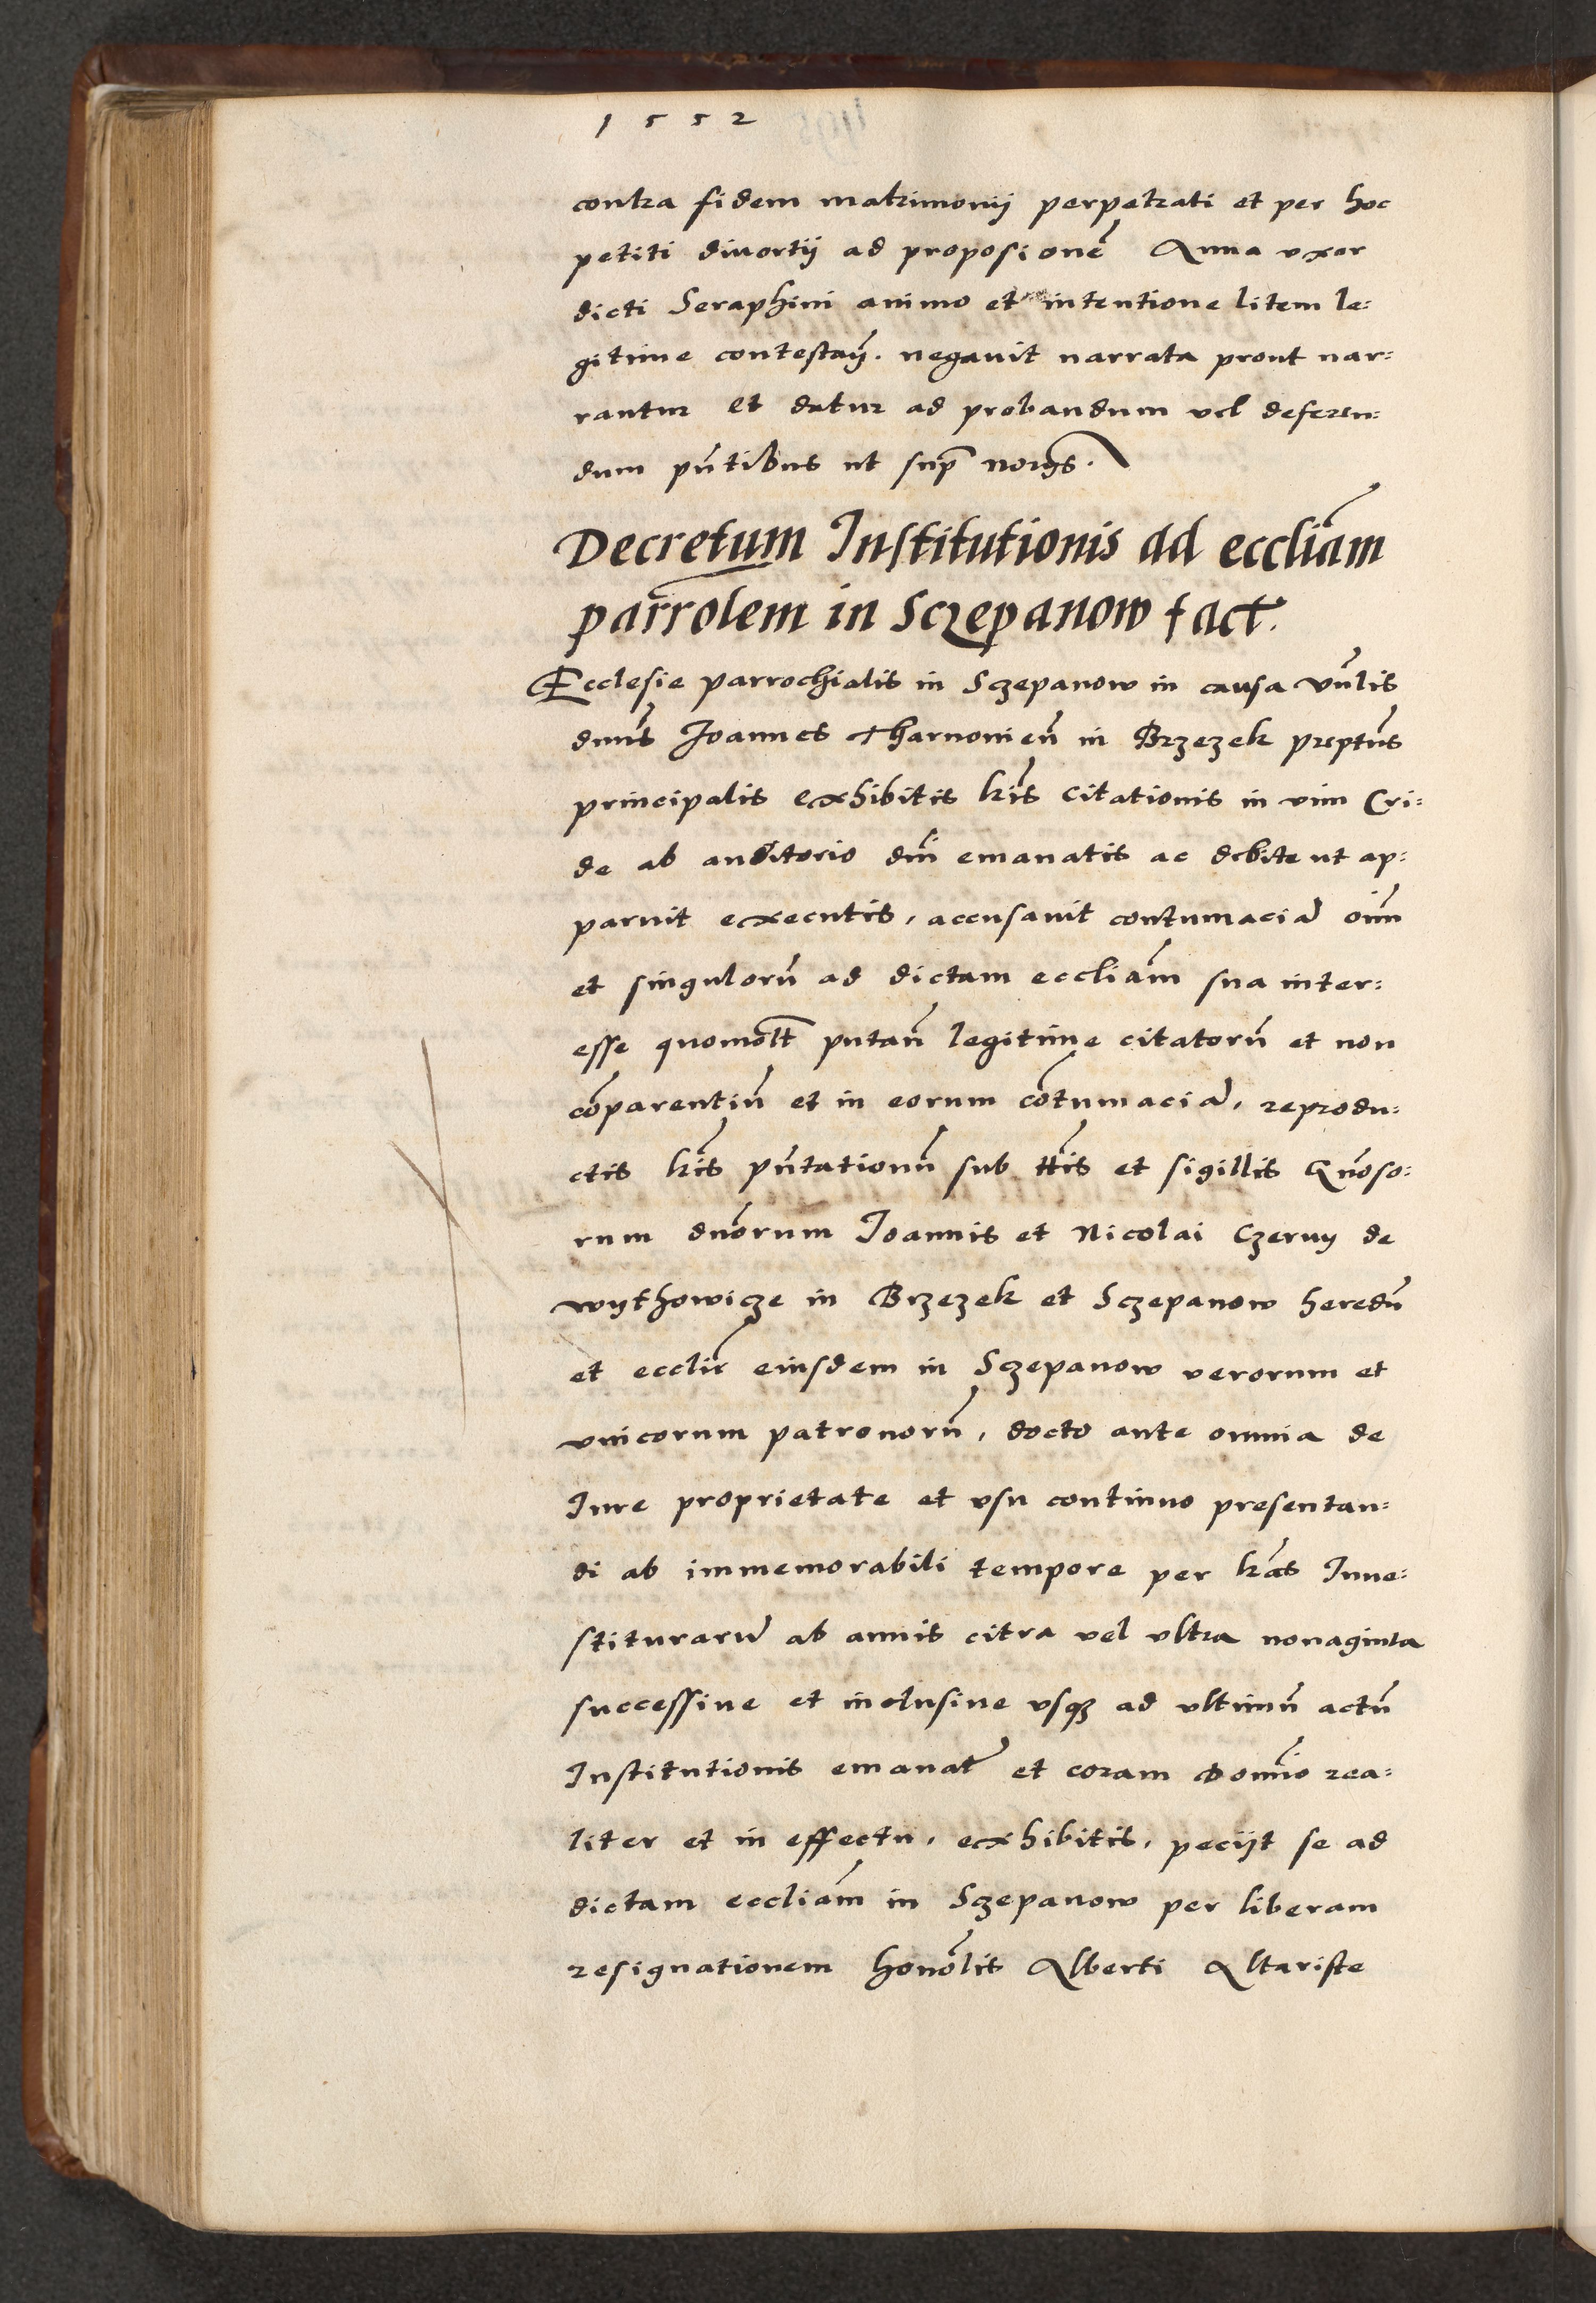 1552
contra fidem matrimonij perpetrati et per hoc
petiti diuortij ad proposicionē Anna vxor
dicti Seraphini animo et intentione litem le=
gitime contestan̄. negauit narrata prout nar=
rantur et datur ad probandum vel deferen=
dum pn̄tibus ut sup̄
Decretum Institutionis ad eccliam̄
parrolem in Sczepanow fact.
Ecclesie parrochialis in Sczepanow in causa vn̄lis
dnus̄ Joannes Tharnouien̄ in Brzezek preptūs
principalis exhibitis lrīs citationis in vim Cri=
de ab auditorio dnī emanatis ac debite ut ap=
paruit executis, accusauit contumaciā oīm
et singulorū ad dictam eccliam̄ sua inter=
esse quomolt̄ putan̄ legitime citatorū et non
cōparentiū et in eorum cōtumaciā, reprodu=
ctis lrīs pn̄tationū sub ttīs et sigillis Gn̄oso=
rum dnōrum Joannis et Nicolai Czerny de
wythowicze in Brzezek et Sczepanow heredū
et eccliē eiusdem in Sczepanow verorum et
vnicorum patronorū, docto ante omnia de
Iure proprietate et vsu continuo presentan=
di ab immemorabili tempore per lrās Inue=
stiturarū ab annis citra vel vltra nonaginta
successiue et inclusiue vsqȝ ad vltimū actū
Institutionis emanat̄ et coram Domīo rea=
liter et in effectu, exhibitis, peciit se ad
dictam eccliam̄ in Sczepanow per liberam
resignationem honōlis Alberti Altariste